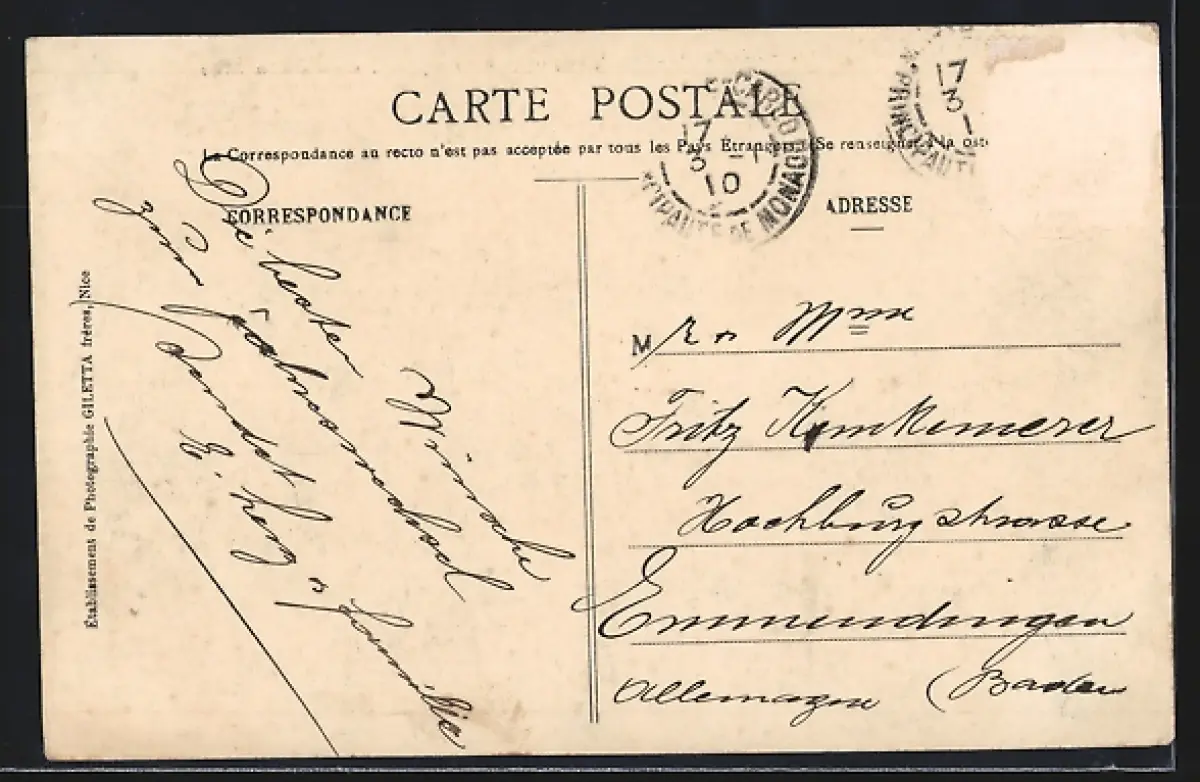 CARTE POSTALE
La Correspondance au recto n'est pas acceptée par tous les Pays Étrangers. (Se renseigner à la
CORRESPONDANCE
ADRESSE
CARLO
17
3 -1
10
DE MONACO
17
3
1
Die besten
Wünsche
zum
E.
familie
Établissement de Photographie GILETTA frères, Nice
M r n Mme
Fritz Kimkemerer
Hochburgstrasse
Emmendingen
Allemagne (Baden